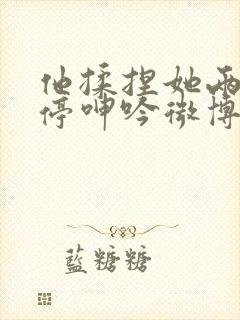 他揉捏她两
停呻吟微博
藍糖糖